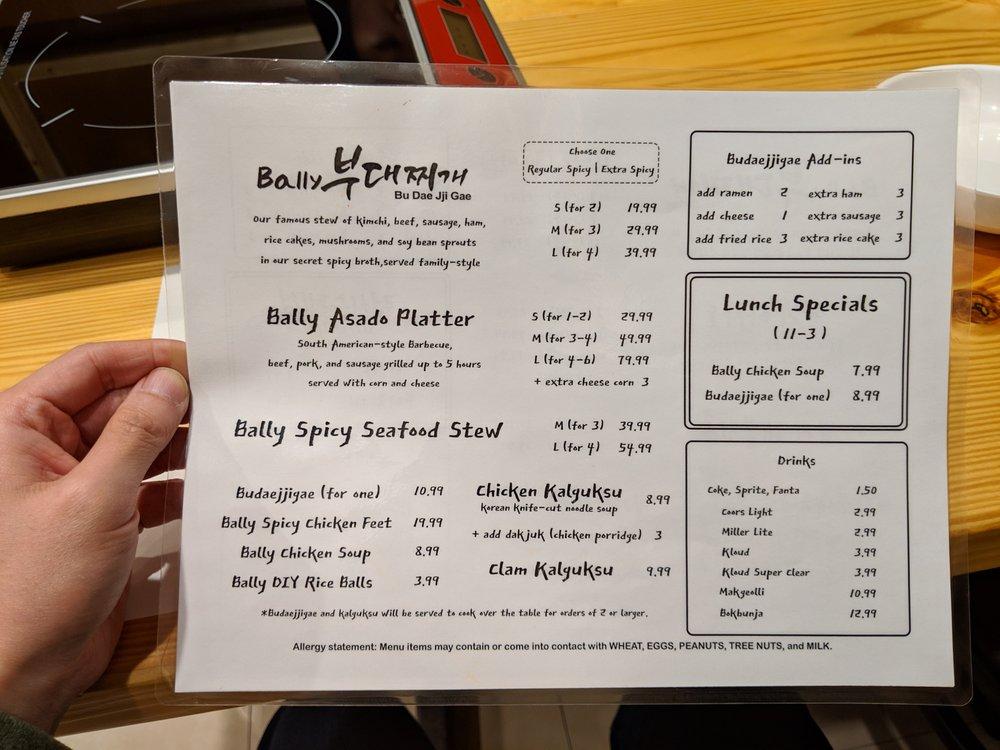 Bally 부대찌개
Bu Dae Jji Gae
Our famous stew of kimchi, beef, sausage, ham,
rice cakes, mushrooms, and soy bean sprouts
in our secret spicy broth,served family-style
Choose One
Regular Spicy | Extra Spicy
S (for 2) 19.99
M (for 3) 29.99
L (for 4) 39.99
Bally Asado Platter
South American-style Barbecue,
beef, pork, and sausage grilled up to 5 hours
served with corn and cheese
S (for 1-2) 29.99
M (for 3-4) 49.99
L (for 4-6) 79.99
+ extra cheese corn 3
Bally Spicy Seafood Stew
M (for 3) 39.99
L (for 4) 54.99
Budaejjigae (for one) 10.99
Bally Spicy Chicken Feet 19.99
Bally Chicken Soup 8.99
Bally DIY Rice Balls 3.99
Chicken Kalguksu 8.99
Korean knife-cut noodle soup
+ add dakjuk (chicken porridge) 3
Clam Kalguksu 9.99
*Budaejjigae and Kalguksu will be served to cook over the table for orders of 2 or larger.
Allergy statement: Menu items may contain or come into contact with WHEAT, EGGS, PEANUTS, TREE NUTS, and MILK.
Budaejjigae Add-ins
add ramen 2 extra ham 3
add cheese 1 extra sausage 3
add fried rice 3 extra rice cake 3
Lunch Specials
(11-3)
Bally Chicken Soup 7.99
Budaejjigae (for one) 8.99
Drinks
Coke, Sprite, Fanta 1.50
Coors Light 2.99
Miller Lite 2.99
Kloud 3.99
Kloud Super Clear 3.99
Makgeolli 10.99
Bokbunja 12.99